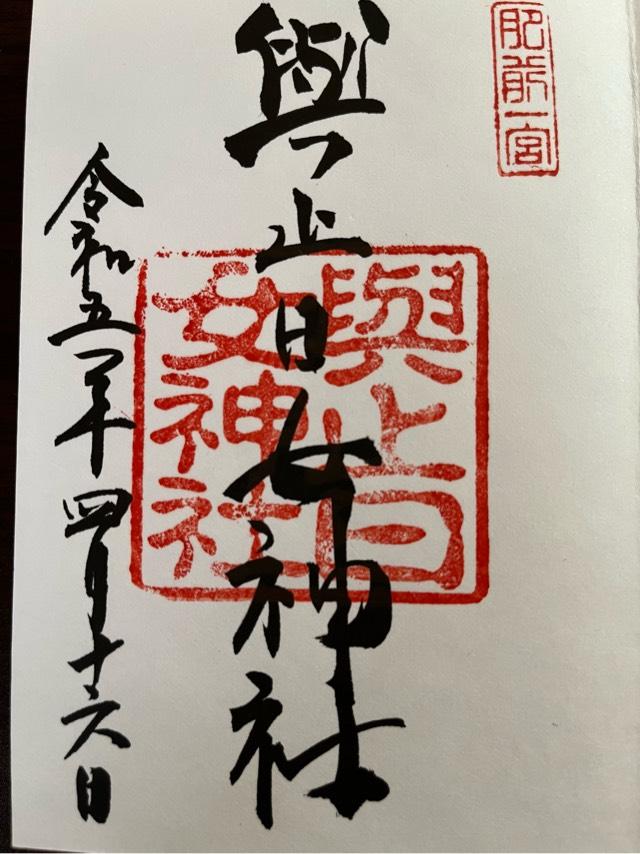 肥前一宮
與止日女神社
與止日女神社
令和五年四月十六日